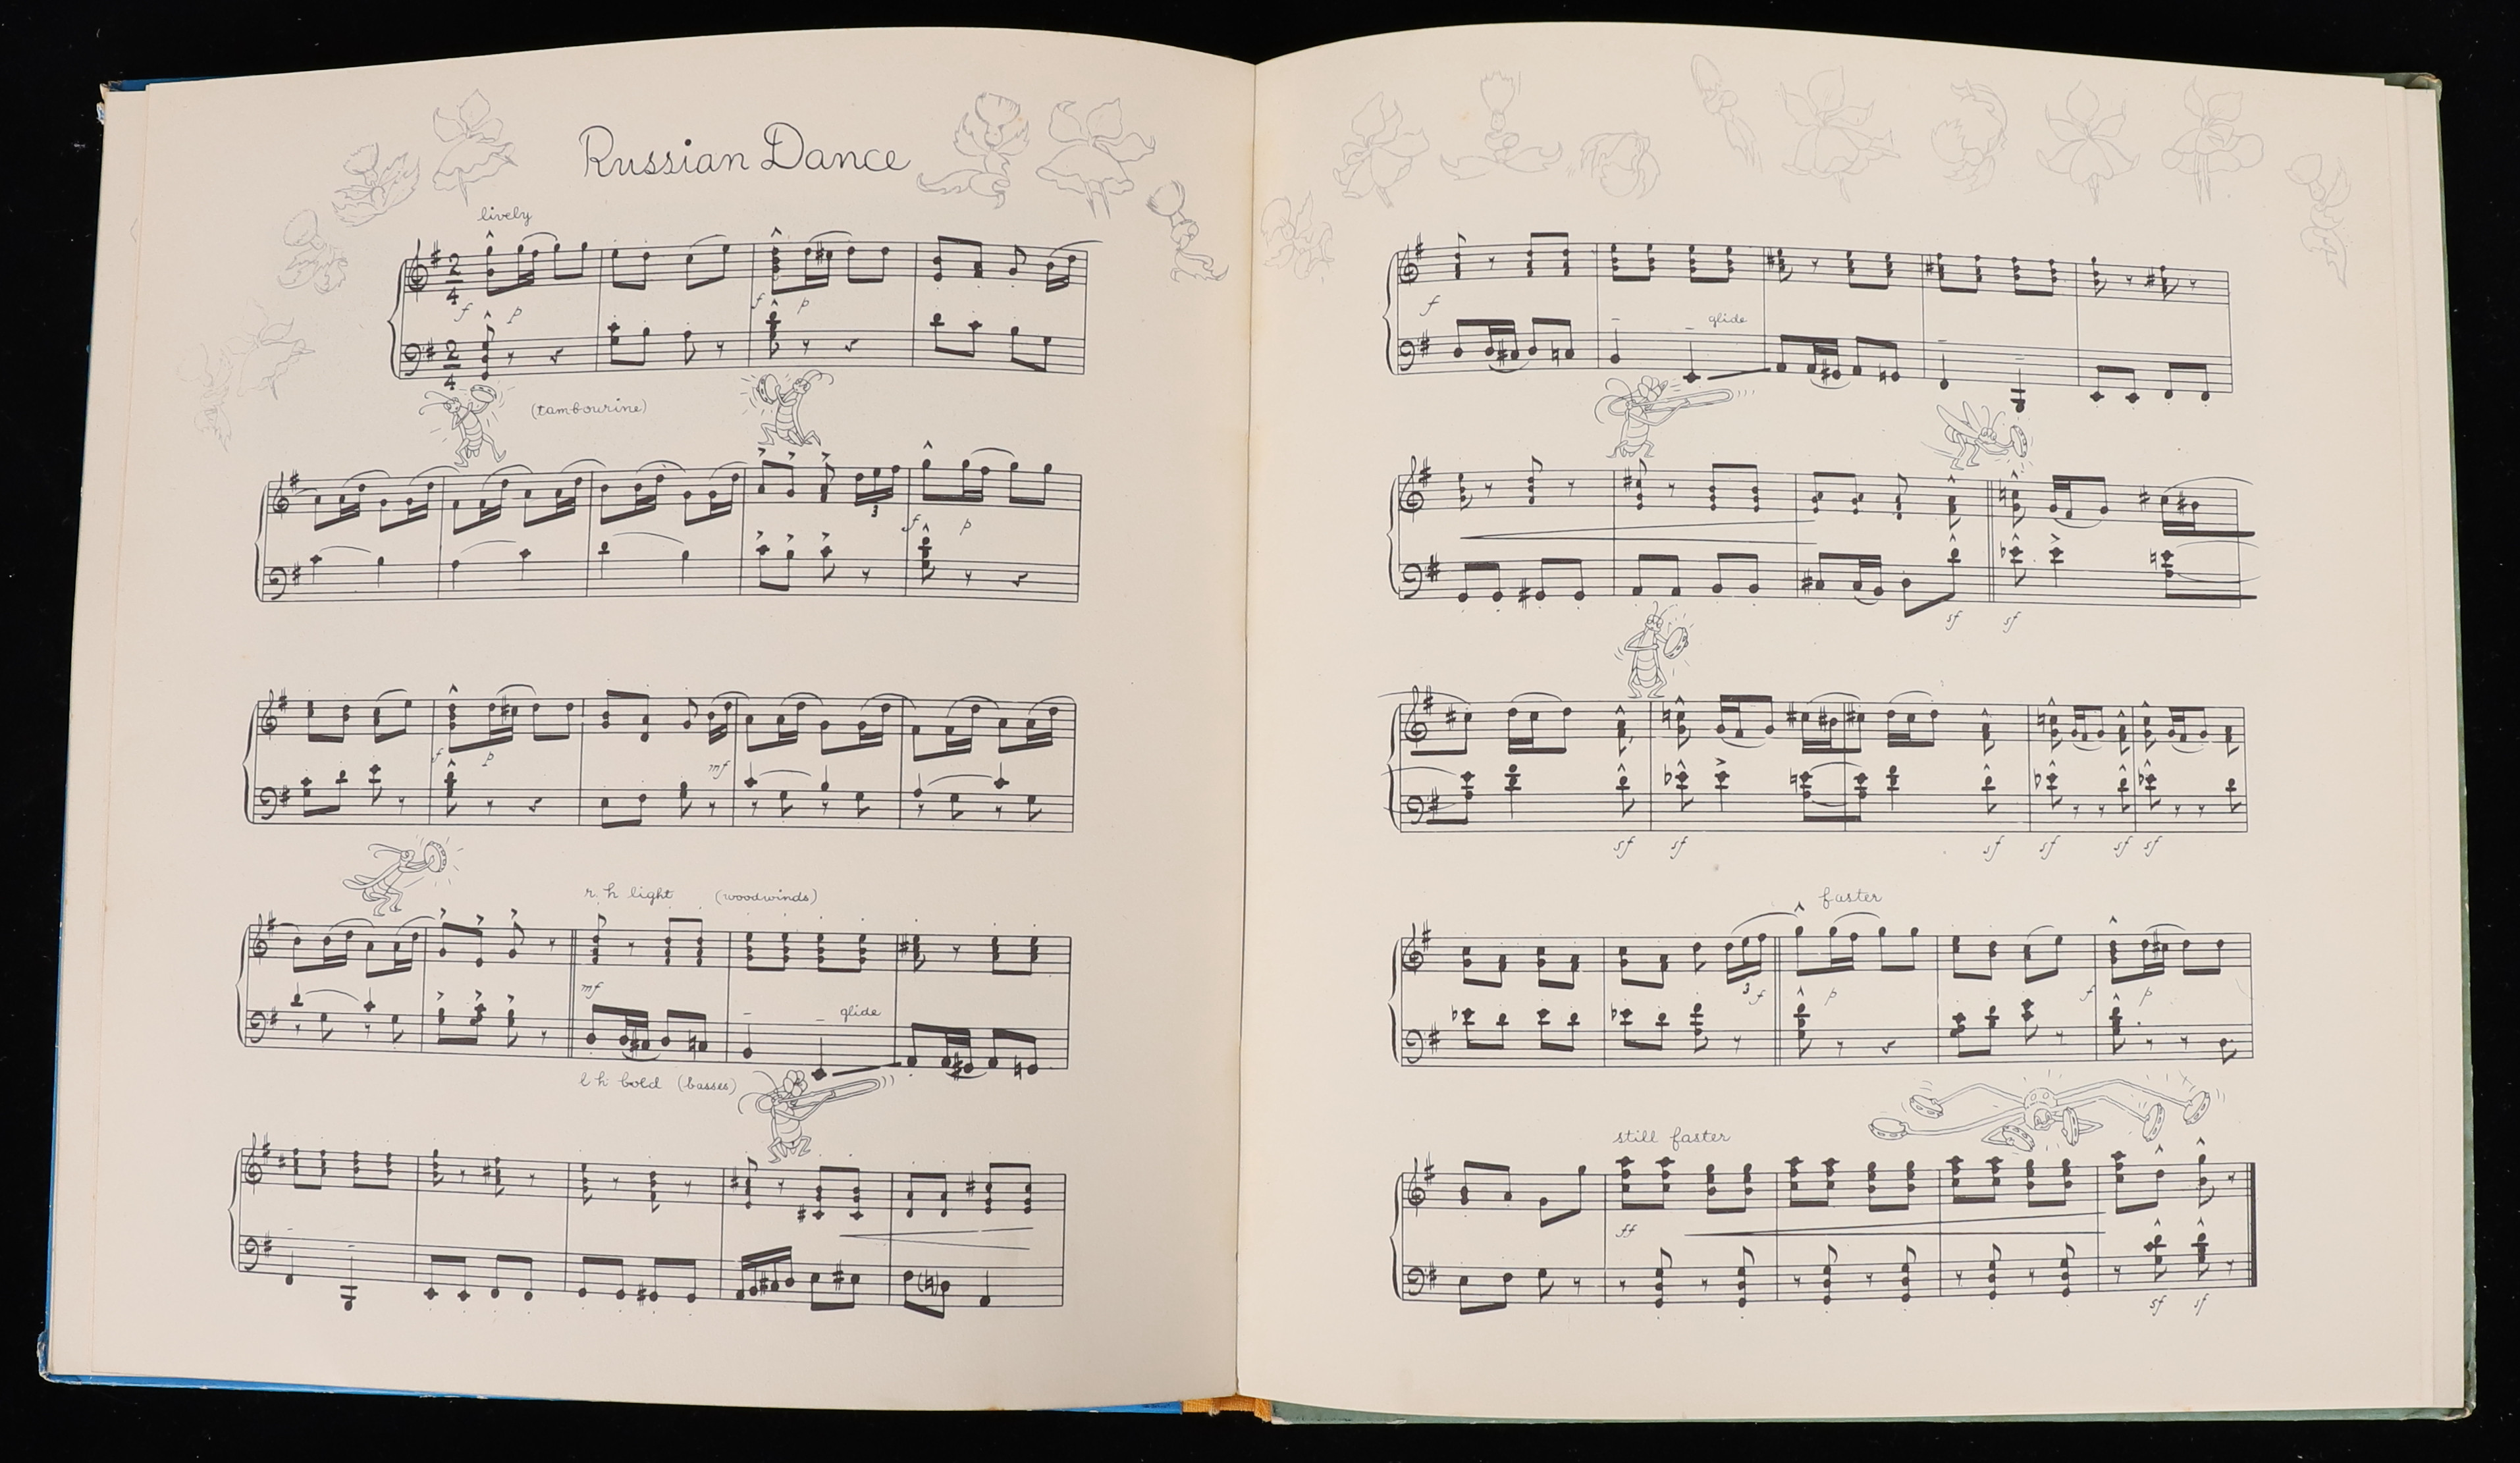 Russian Dance
lively
2 4
f p f p
2 4
(tambourine)
3
f p
f p mf
r. h light (woodwinds)
mf
glide
l h bold (basses)
f
glide
sf sf
sf sf sf sf sf sf
faster
3 f p f p
still faster
ff
sf sf